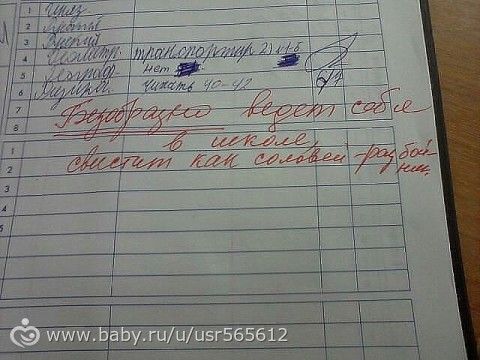 1
2
3
4 Геометр. транспортир 2) 1-6
5 Географ нет
6 читать 40-42
7 Безобразно ведет себя
8 в школе,
1 свистит как соловей - разбой-
2 ник.
3
4
5
www.baby.ru/u/usr565612